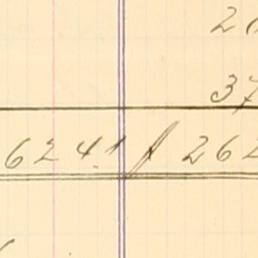 2
37
624.1 262